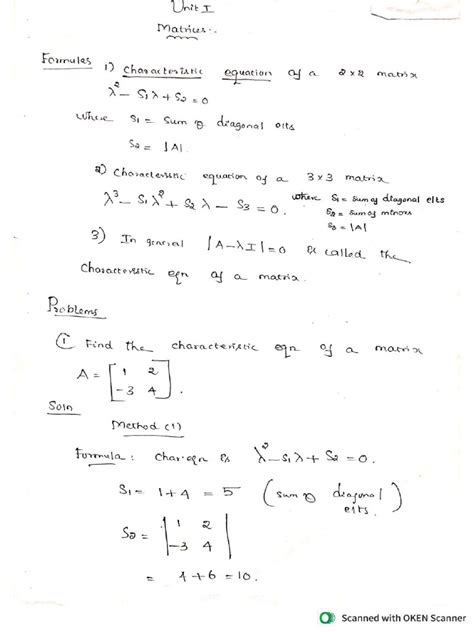 Unit I
Matrices:-
Formulas 1) Characteristic equation of a 2x2 matrix
λ² - S₁λ + S₂ = 0
where S₁ = Sum of diagonal elts
S₂ = |A|.
2) Characteristic equation of a 3x3 matrix
λ³ - S₁λ² + S₂λ - S₃ = 0. where S₁ = Sum of diagonal elts
S₂ = Sum of minors
S₃ = |A|
3) In general |A-λI| = 0 is called the
Characteristic eqn of a matrix.
Problems
① Find the characteristic eqn of a matrix
A = [ 1 2
-3 4 ].
Soln
Method (1)
Formula: Char. eqn is λ² - S₁λ + S₂ = 0.
S₁ = 1+4 = 5 (sum of diagonal
elts.)
S₂ = | 1 2
-3 4 |
= 4+6 = 10.
Scanned with OKEN Scanner